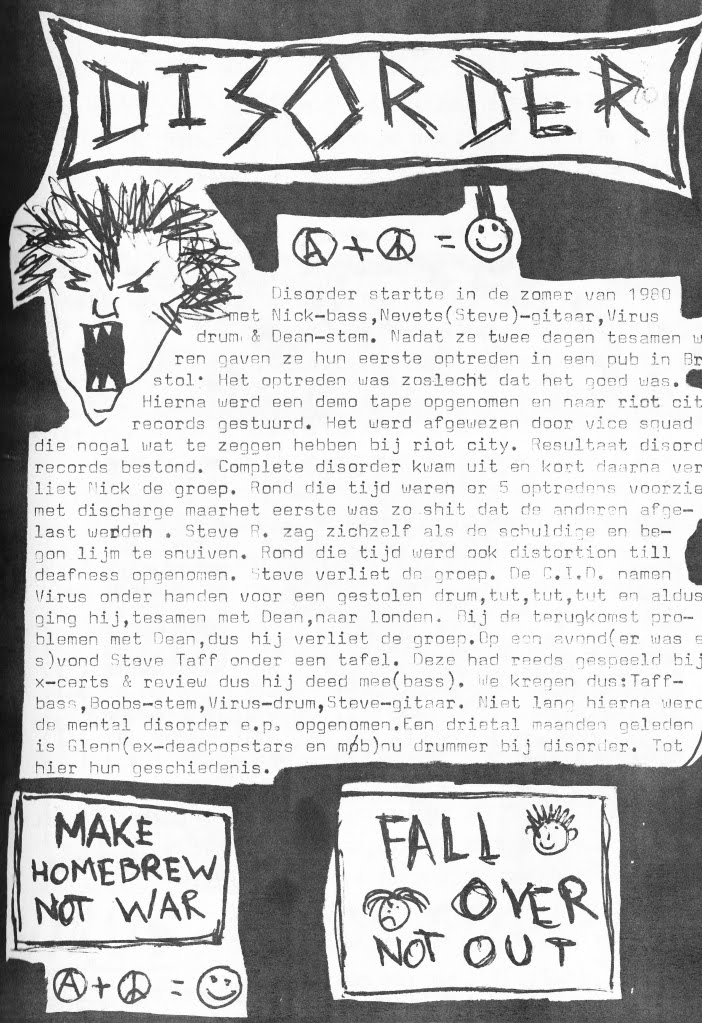 DISORDER
Ⓐ + ☮ = ☺
Disorder startte in de zomer van 1980
met Nick-bass,Nevets(Steve)-gitaar,Virus
drum & Dean-stem. Nadat ze twee dagen tesamen w
ren gaven ze hun eerste optreden in een pub in Br
stol. Het optreden was zoslecht dat het goed was.
Hierna werd een demo tape opgenomen en naar riot cit
records gestuurd. Het werd afgewezen door vice squad
die nogal wat te zeggen hebben bij riot city. Resultaat disord
records bestond. Complete disorder kwam uit en kort daarna ver
liet Nick de groep. Rond die tijd waren er 5 optredens voorzie
met discharge maarhet eerste was zo shit dat de anderen afge-
last werden . Steve R. zag zichzelf als de schuldige en be-
gon lijm te snuiven. Rond die tijd werd ook distortion till
deafness opgenomen. Steve verliet de groep. De C.I.D. namen
Virus onder handen voor een gestolen drum,tut,tut,tut en aldus
ging hij,tesamen met Dean,naar londen. Bij de terugkomst pro-
blemen met Dean,dus hij verliet de groep.Op een avond(er was e
s)vond Steve Taff onder een tafel. Deze had reeds gespeeld bij
x-certs & review dus hij deed mee(bass). We kregen dus:Taff-
bass,Boobs-stem,Virus-drum,Steve-gitaar. Niet lang hierna werd
de mental disorder e.p. opgenomen.Een drietal maanden geleden
is Glenn(ex-deadpopstars en møb)nu drummer bij disorder. Tot
hier hun geschiedenis.
MAKE
HOMEBREW
NOT WAR
Ⓐ + ☮ = ☺
FALL
OVER
NOT OUT